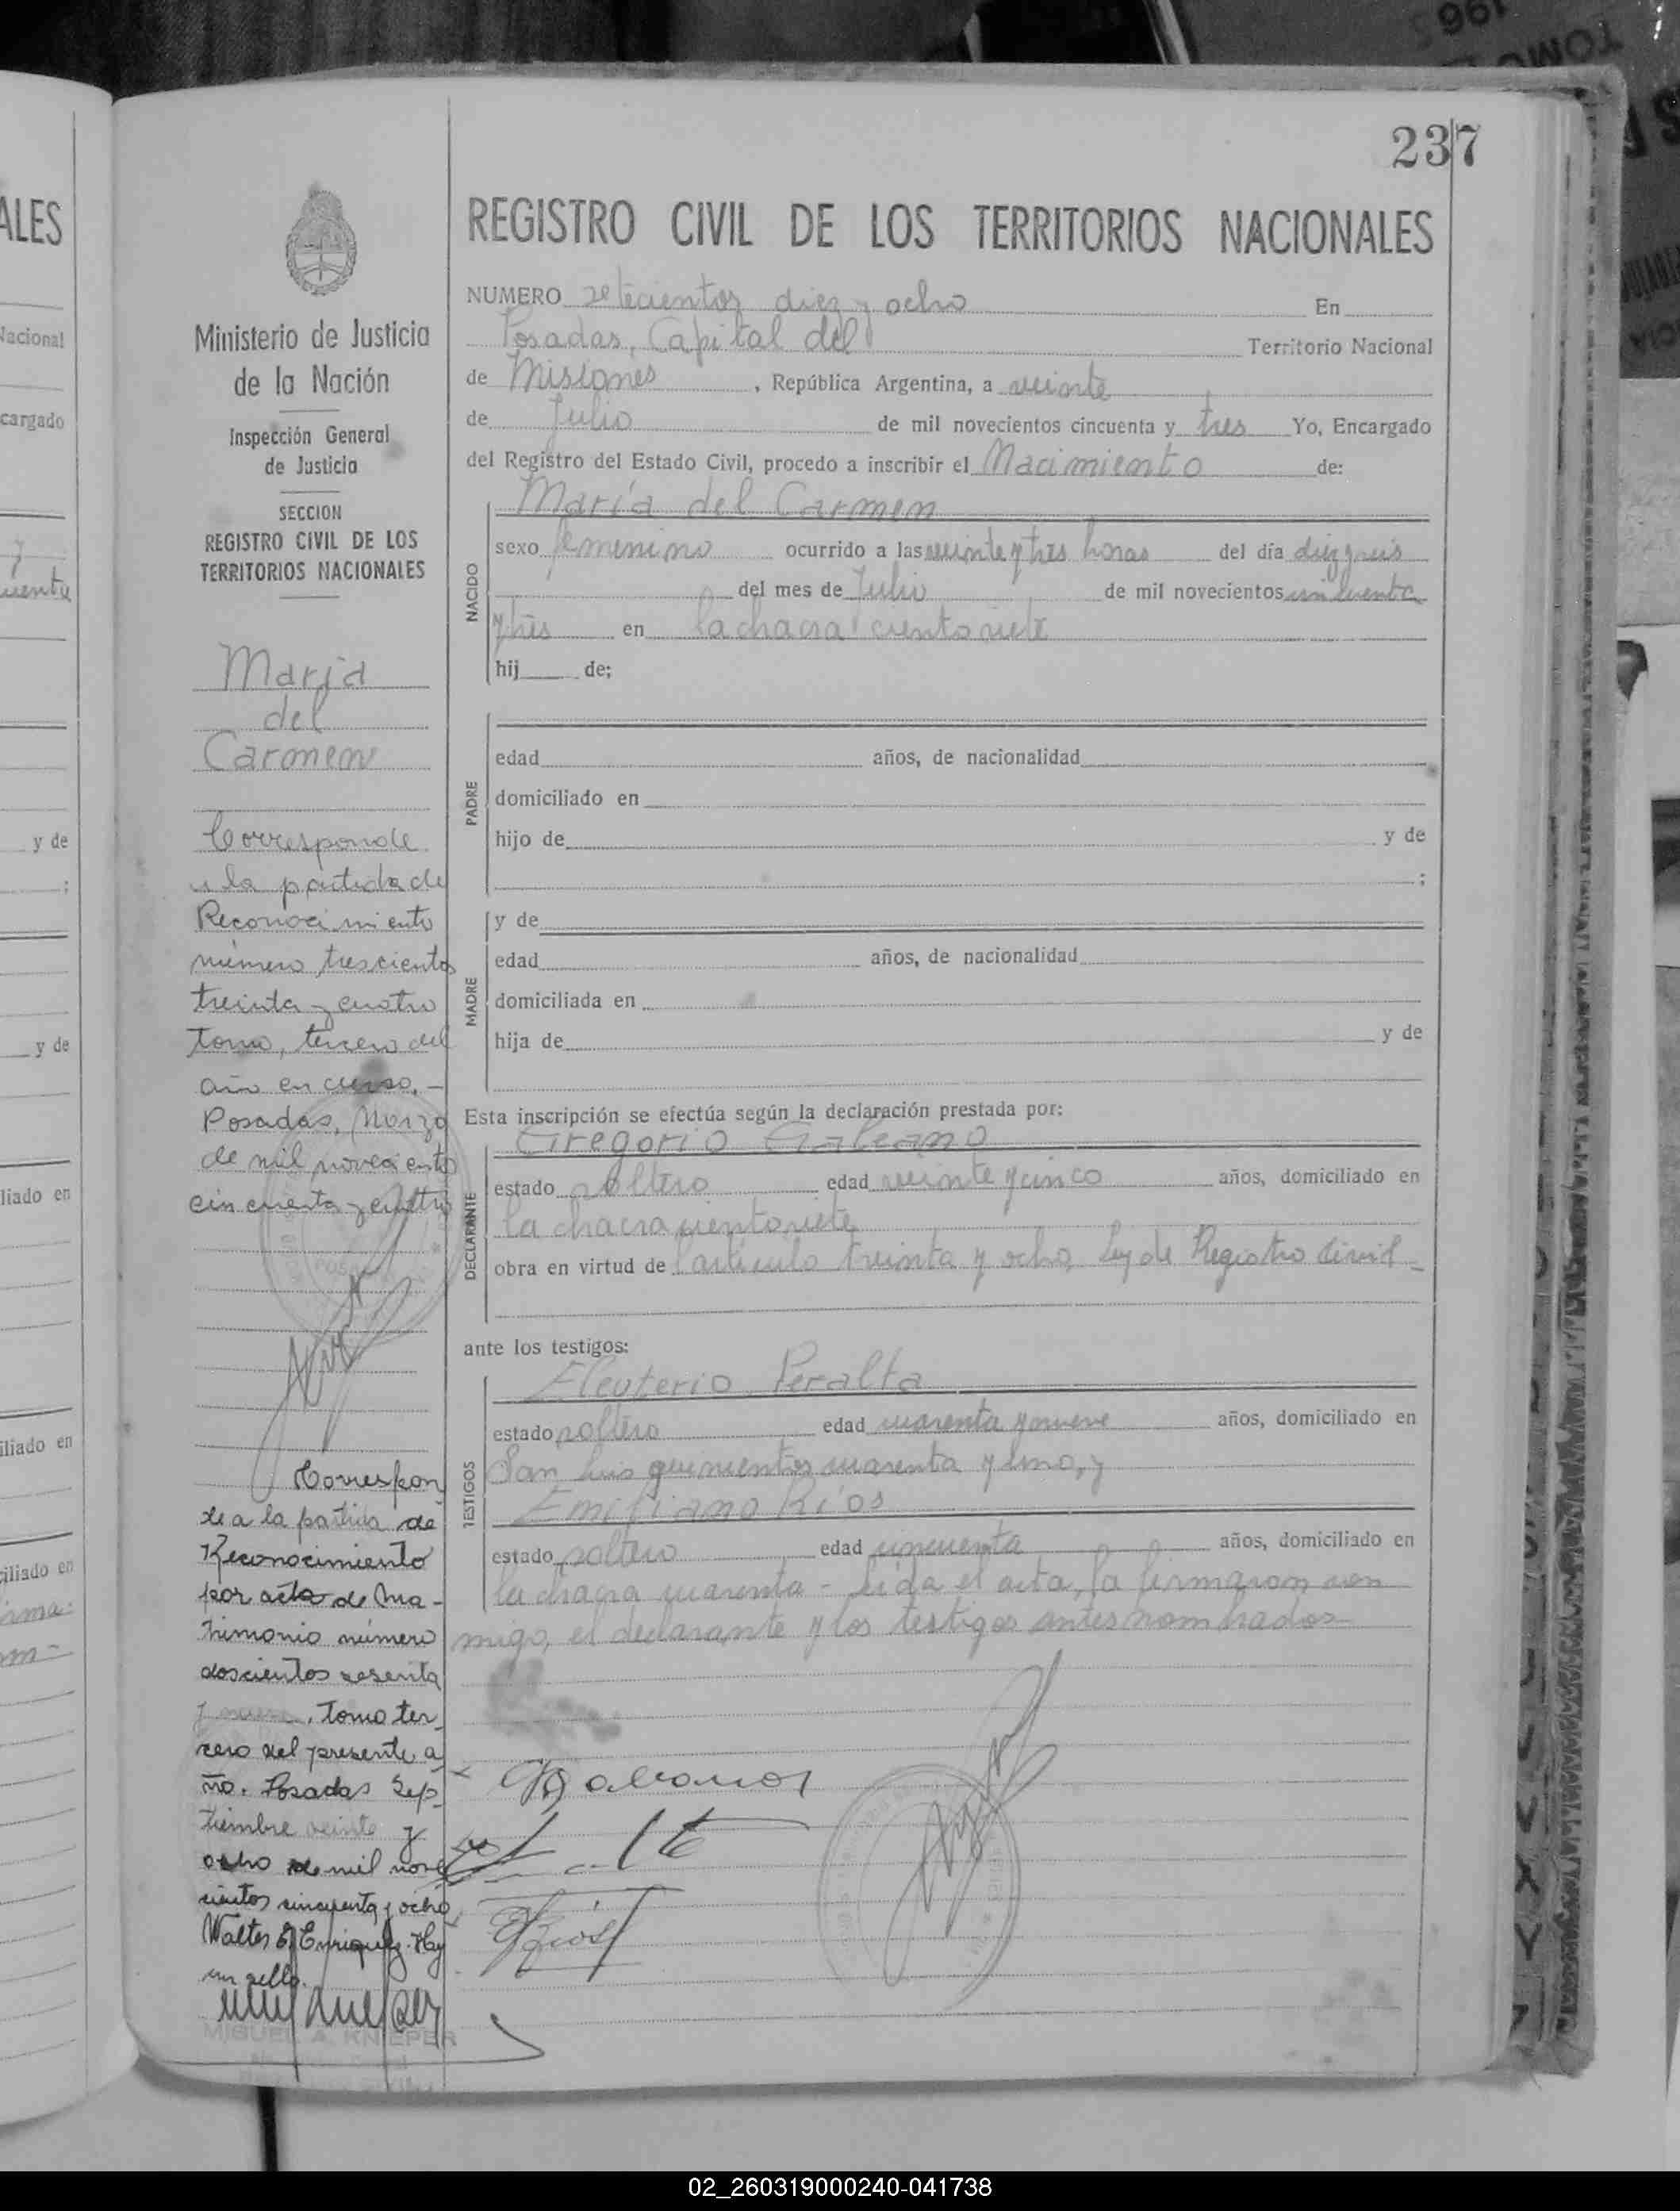 237
REGISTRO CIVIL DE LOS TERRITORIOS NACIONALES
Ministerio de Justicia
de la Nación
Inspección General
de Justicia
SECCION
REGISTRO CIVIL DE LOS
TERRITORIOS NACIONALES
María
del
Carmen
Corresponde
a la partida de
Reconocimiento
número trescientos
treinta y cuatro
Tomo, tercero del
año en curso.-
Posadas, Marzo
de mil novecientos
cincuenta y cuatro
Correspon
de a la partida de
Reconocimiento
por acta de Ma-
trimonio número
doscientos sesenta
y nueve, Tomo ter
cero del presente a
ño. Posadas Sep
tiembre veinte y
ocho de mil nove
cientos cincuenta y ocho
Walter E. Enriquez. Hay
un sello.
MIGUEL A. KNIEPER
NUMERO setecientos diez y ocho En
Posadas, Capital del Territorio Nacional
de Misiones, República Argentina, a veinte
de Julio de mil novecientos cincuenta y tres Yo, Encargado
del Registro del Estado Civil, procedo a inscribir el Nacimiento de:
NACIDO
María del Carmen
sexo femenino ocurrido a las veinte y tres horas del día diez y seis
del mes de Julio de mil novecientos cincuenta
y tres en la chacra ciento siete
hij de;
PADRE
edad años, de nacionalidad
domiciliado en
hijo de y de
;
MADRE
y de
edad años, de nacionalidad
domiciliada en
hija de y de
Esta inscripción se efectúa según la declaración prestada por:
DECLARANTE
Gregorio Galeano
estado soltero edad veinte y cinco años, domiciliado en
la chacra ciento siete
obra en virtud de artículo treinta y ocho, Ley de Registro Civil-
ante los testigos:
TESTIGOS
Eleuterio Peralta
estado soltero edad cuarenta y nueve años, domiciliado en
San Luis quinientos cuarenta y uno, y
Emiliano Ríos
estado soltero edad cincuenta años, domiciliado en
la chacra cuarenta - Leída el acta, la firmaron con
migo, el declarante y los testigos antes nombrados-
ALES
Nacional
cargado
y de
;
y de
liado en
iliado en
ciliado en
TOMO
02_260319000240-041738